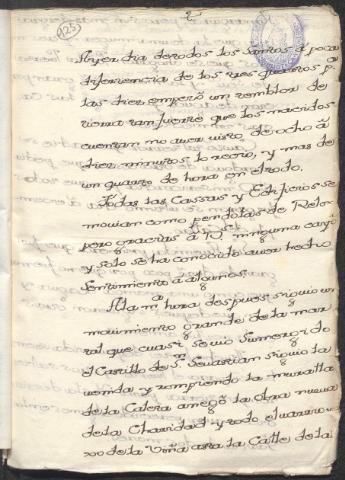 125
Ayer dia de todos los Santos a poca
diferiencia de los tres quartos p.ª
las diez empezò un temblor de
tierra tan fuerte que los nacidos
cuentan no aver visto de ocho â
diez minutos lo recio, y mas de
un quarto de hora en todo.
Todas las Cassas y Edificios se
movian como pendolas de Relox
pero gracias â D.s ninguna cayò
y solo se ha conocido aver hecho
sentimiento â algunos.
A la m.ª hora despues siguio un
movimiento grande de la mar
tal que cuasi se vio Sumergido
el Castillo de S.n Sevastian siguio la
uenida y rompiendo la muralla
de la Caleta anegò la obra nueva
de la Charidad y todo el varrio
de la Viña asta la Calle de la